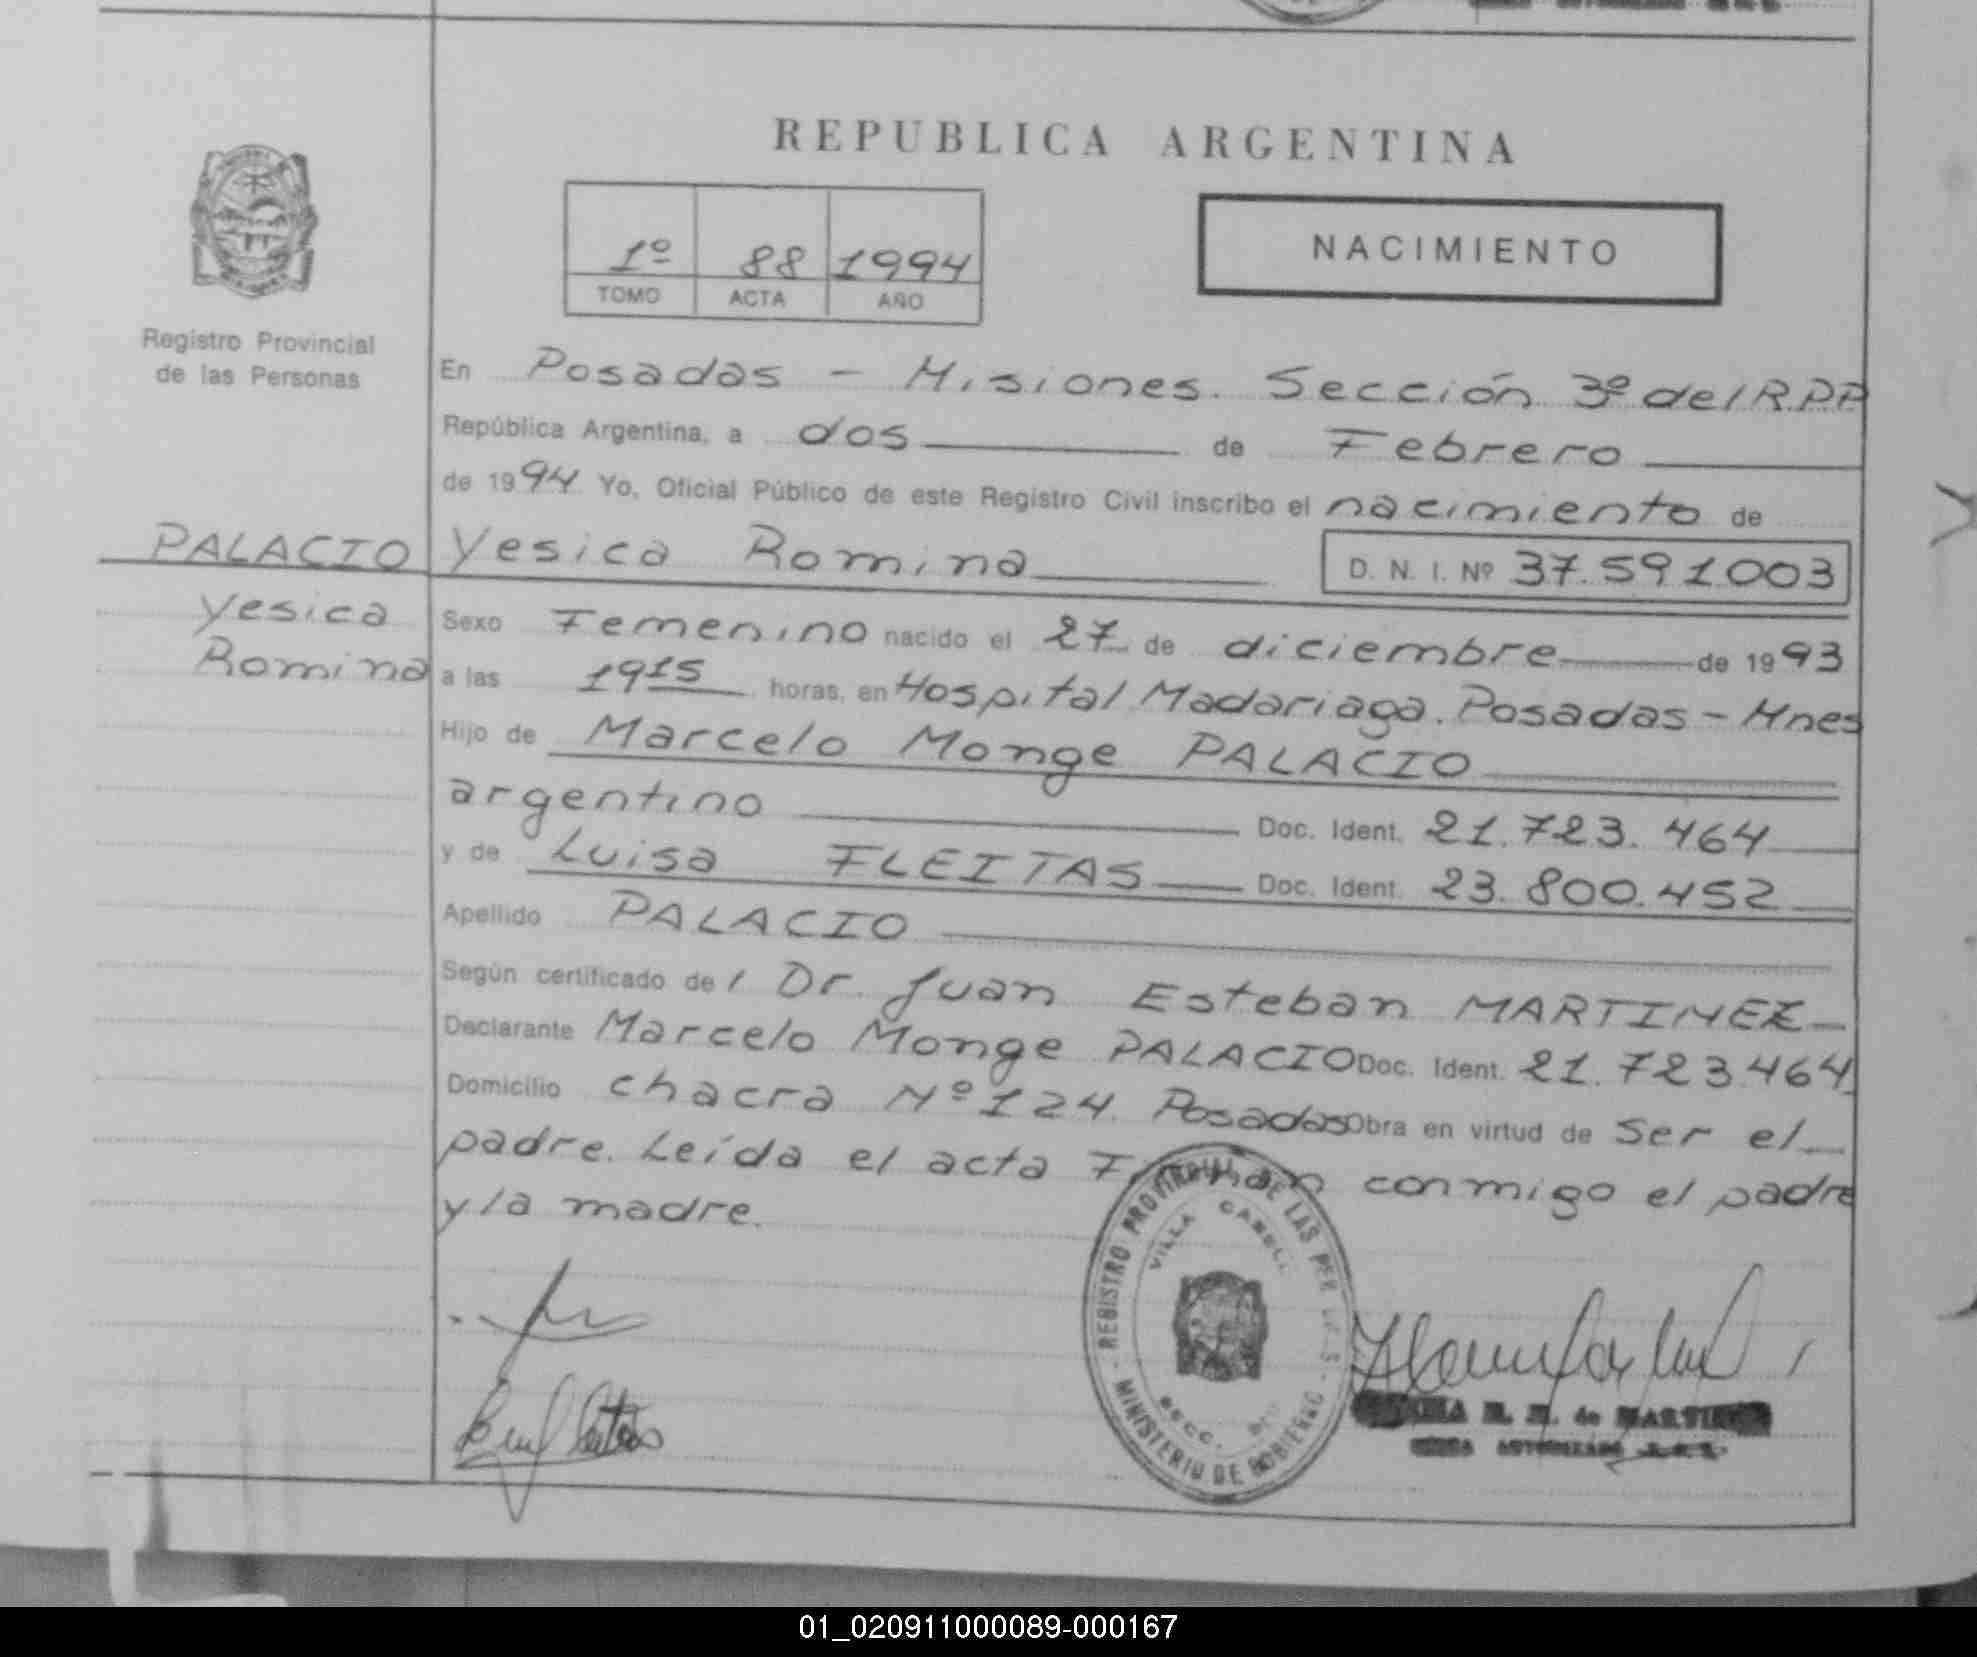 REPUBLICA ARGENTINA
1º 88 1994
TOMO ACTA AÑO
NACIMIENTO
Registro Provincial
de las Personas
En Posadas - Misiones. Sección 3º del R.P.P
República Argentina, a dos de Febrero
de 1994 Yo, Oficial Público de este Registro Civil inscribo el nacimiento de
PALACIO Yesica Romina D. N. I. Nº 37.591.003
Yesica
Romina
Sexo Femenino nacido el 27 de diciembre de 1993
a las 19 15 horas, en Hospital Madariaga. Posadas - Mnes
Hijo de Marcelo Monge PALACIO
argentino Doc. Ident. 21.723.464
y de Luisa FLEITAS Doc. Ident. 23.800.452
Apellido PALACIO
Según certificado del Dr. Juan Esteban MARTINEZ
Declarante Marcelo Monge PALACIO Doc. Ident. 21.723464
Domicilio chacra Nº 124. Posadas Obra en virtud de ser el
padre. Leída el acta Firman conmigo el padre
y la madre.
REGISTRO PROVINCIAL DE LAS PERSONAS
VILLA CABELLO
SECC.
MINISTERIO DE GOBIERNO
M. de MARTINEZ
AUTORIZADO
01_020911000089-000167